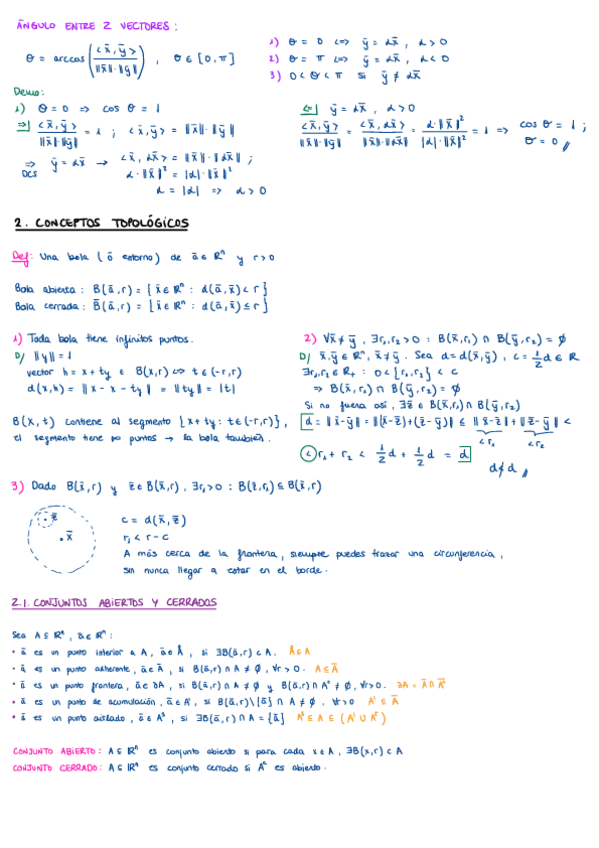 ÁNGULO ENTRE 2 VECTORES:
θ = arccos(<x̄, ȳ> / ‖x̄‖·‖ȳ‖), θ ∈ [0, π]
1) θ = 0 <=> ȳ = αx̄, α > 0
2) θ = π <=> ȳ = αx̄, α < 0
3) 0 < θ < π si ȳ ≠ αx̄
Demo:
1) θ = 0 => cos θ = 1
=>| <x̄, ȳ> / ‖x̄‖·‖ȳ‖ = 1 ; <x̄, ȳ> = ‖x̄‖·‖ȳ‖
=> DCS ȳ = αx̄ → <x̄, αx̄> = ‖x̄‖·‖αx̄‖ ;
α·‖x̄‖² = |α|·‖x̄‖²
α = |α| => α > 0
<=| ȳ = αx̄, α > 0
<x̄, ȳ> / ‖x̄‖·‖ȳ‖ = <x̄, αx̄> / ‖x̄‖·‖αx̄‖ = α·‖x̄‖² / |α|·‖x̄‖² = 1 => cos θ = 1 ;
θ = 0 //
2. CONCEPTOS TOPOLÓGICOS
Def: Una bola (ó entorno) de ā ∈ ℝⁿ y r > 0
Bola abierta: B(ā, r) = {x̄ ∈ ℝⁿ : d(ā, x̄) < r}
Bola cerrada: B̄(ā, r) = {x̄ ∈ ℝⁿ : d(ā, x̄) ≤ r}
1) Toda bola tiene infinitos puntos.
D/ ‖y‖ = 1
vector h = x + ty ∈ B(x, r) <=> t ∈ (-r, r)
d(x, h) = ‖x - x - ty‖ = ‖ty‖ = |t|
B(x, t) contiene al segmento {x + ty : t ∈ (-r, r)},
el segmento tiene ∞ puntos → la bola también.
2) ∀x̄ ≠ ȳ, ∃r₁, r₂ > 0 : B(x̄, r₁) ∩ B(ȳ, r₂) = ∅
D/ x̄, ȳ ∈ ℝⁿ, x̄ ≠ ȳ. Sea d = d(x̄, ȳ), c = 1/2 d ∈ ℝ
∃r₁, r₂ ∈ ℝ₊ : 0 < {r₁, r₂} < c
=> B(x̄, r₁) ∩ B(ȳ, r₂) = ∅
Si no fuera así, ∃z̄ ∈ B(x̄, r₁) ∩ B(ȳ, r₂)
d = ‖x̄ - ȳ‖ = ‖(x̄ - z̄) + (z̄ - ȳ)‖ ≤ ‖x̄ - z̄‖ + ‖z̄ - ȳ‖ <
< r₁ < r₂
< r₁ + r₂ < 1/2 d + 1/2 d = d
d ≮ d //
3) Dado B(x̄, r) y z̄ ∈ B(x̄, r), ∃r₁ > 0 : B(z̄, r₁) ⊆ B(x̄, r)
z̄
x̄
c = d(x̄, z̄)
r₁ < r - c
A más cerca de la frontera, siempre puedes trazar una circunferencia,
sin nunca llegar a estar en el borde.
2.1. CONJUNTOS ABIERTOS Y CERRADOS
Sea A ⊆ ℝⁿ, ā ∈ ℝⁿ:
• ā es un punto interior a A, ā ∈ Å, si ∃B(ā, r) ⊂ A. Å ⊆ A
• ā es un punto adherente, ā ∈ Ā, si B(ā, r) ∩ A ≠ ∅, ∀r > 0. A ⊆ Ā
• ā es un punto frontera, ā ∈ ∂A, si B(ā, r) ∩ A ≠ ∅ y B(ā, r) ∩ Aᶜ ≠ ∅, ∀r > 0. ∂A = Ā ∩ Āᶜ
• ā es un punto de acumulación, ā ∈ A', si B(ā, r)\{ā} ∩ A ≠ ∅, ∀r > 0 A' ⊆ Ā
• ā es un punto aislado, ā ∈ Aˢ, si ∃B(ā, r) ∩ A = {ā} Aˢ ⊆ A ⊆ (A' ∪ Aˢ)
CONJUNTO ABIERTO: A ⊆ ℝⁿ es conjunto abierto si para cada x ∈ A, ∃B(x, r) ⊂ A
CONJUNTO CERRADO: A ⊆ ℝⁿ es conjunto cerrado si Aᶜ es abierto.